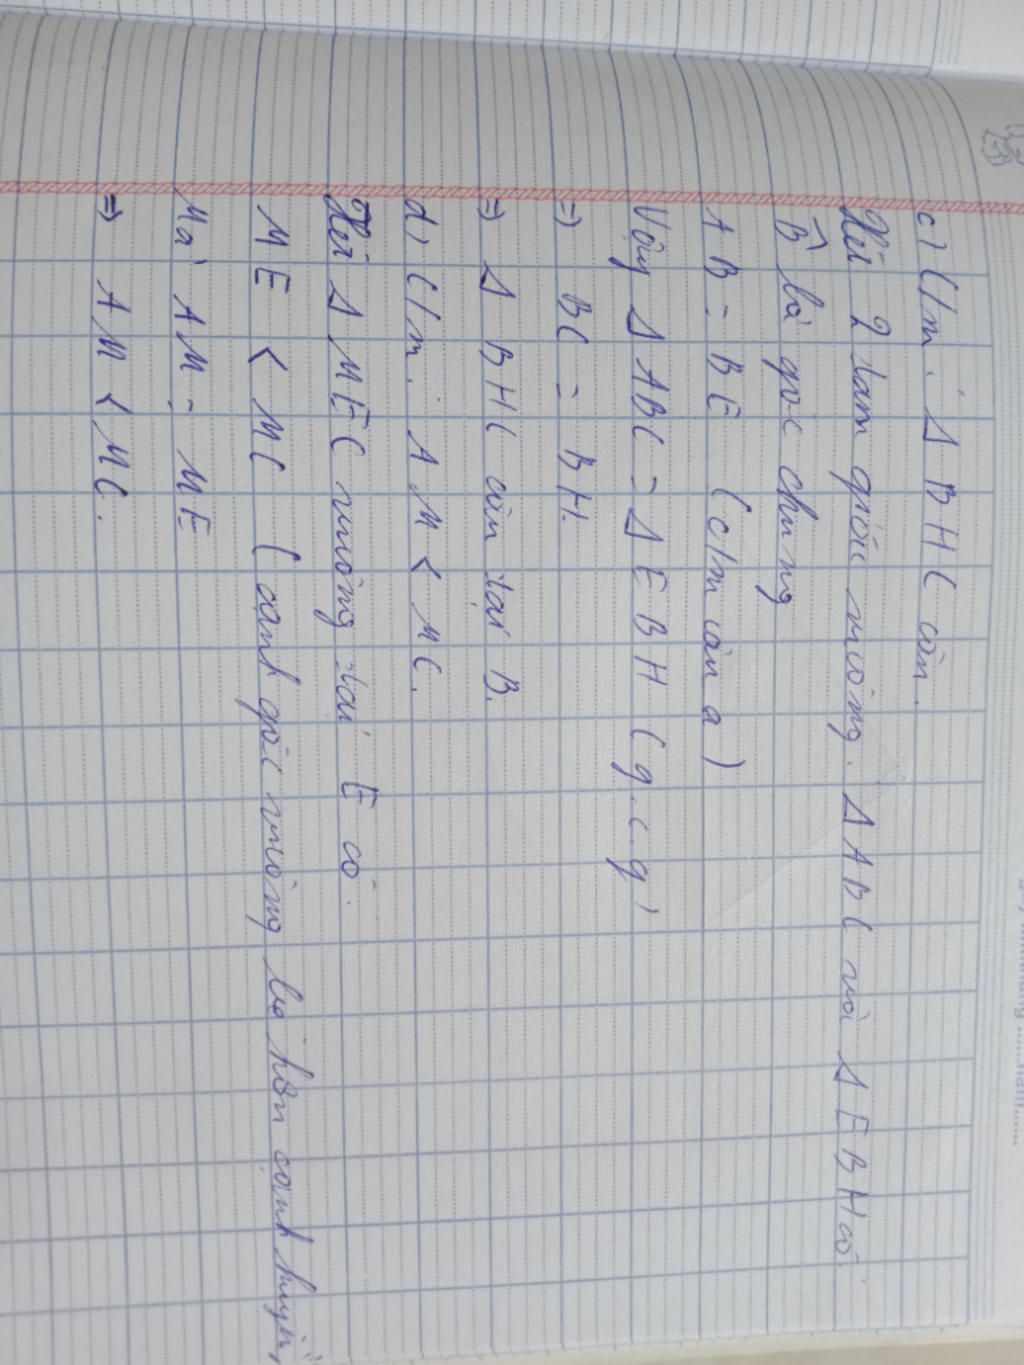 c) C/m: Δ BHC cân.
Xét 2 tam giác vuông. Δ ABC và Δ EBH có
B̂ là góc chung
AB = BE (c/m câu a)
Vậy Δ ABC = Δ EBH (g.c.g)
=> BC = BH.
=> Δ BHC cân tại B.
d) C/m: AM < MC.
Xét Δ MEC vuông tại E có.
ME < MC (cạnh góc vuông bé hơn cạnh huyền)
Mà AM = ME
=> AM < MC.